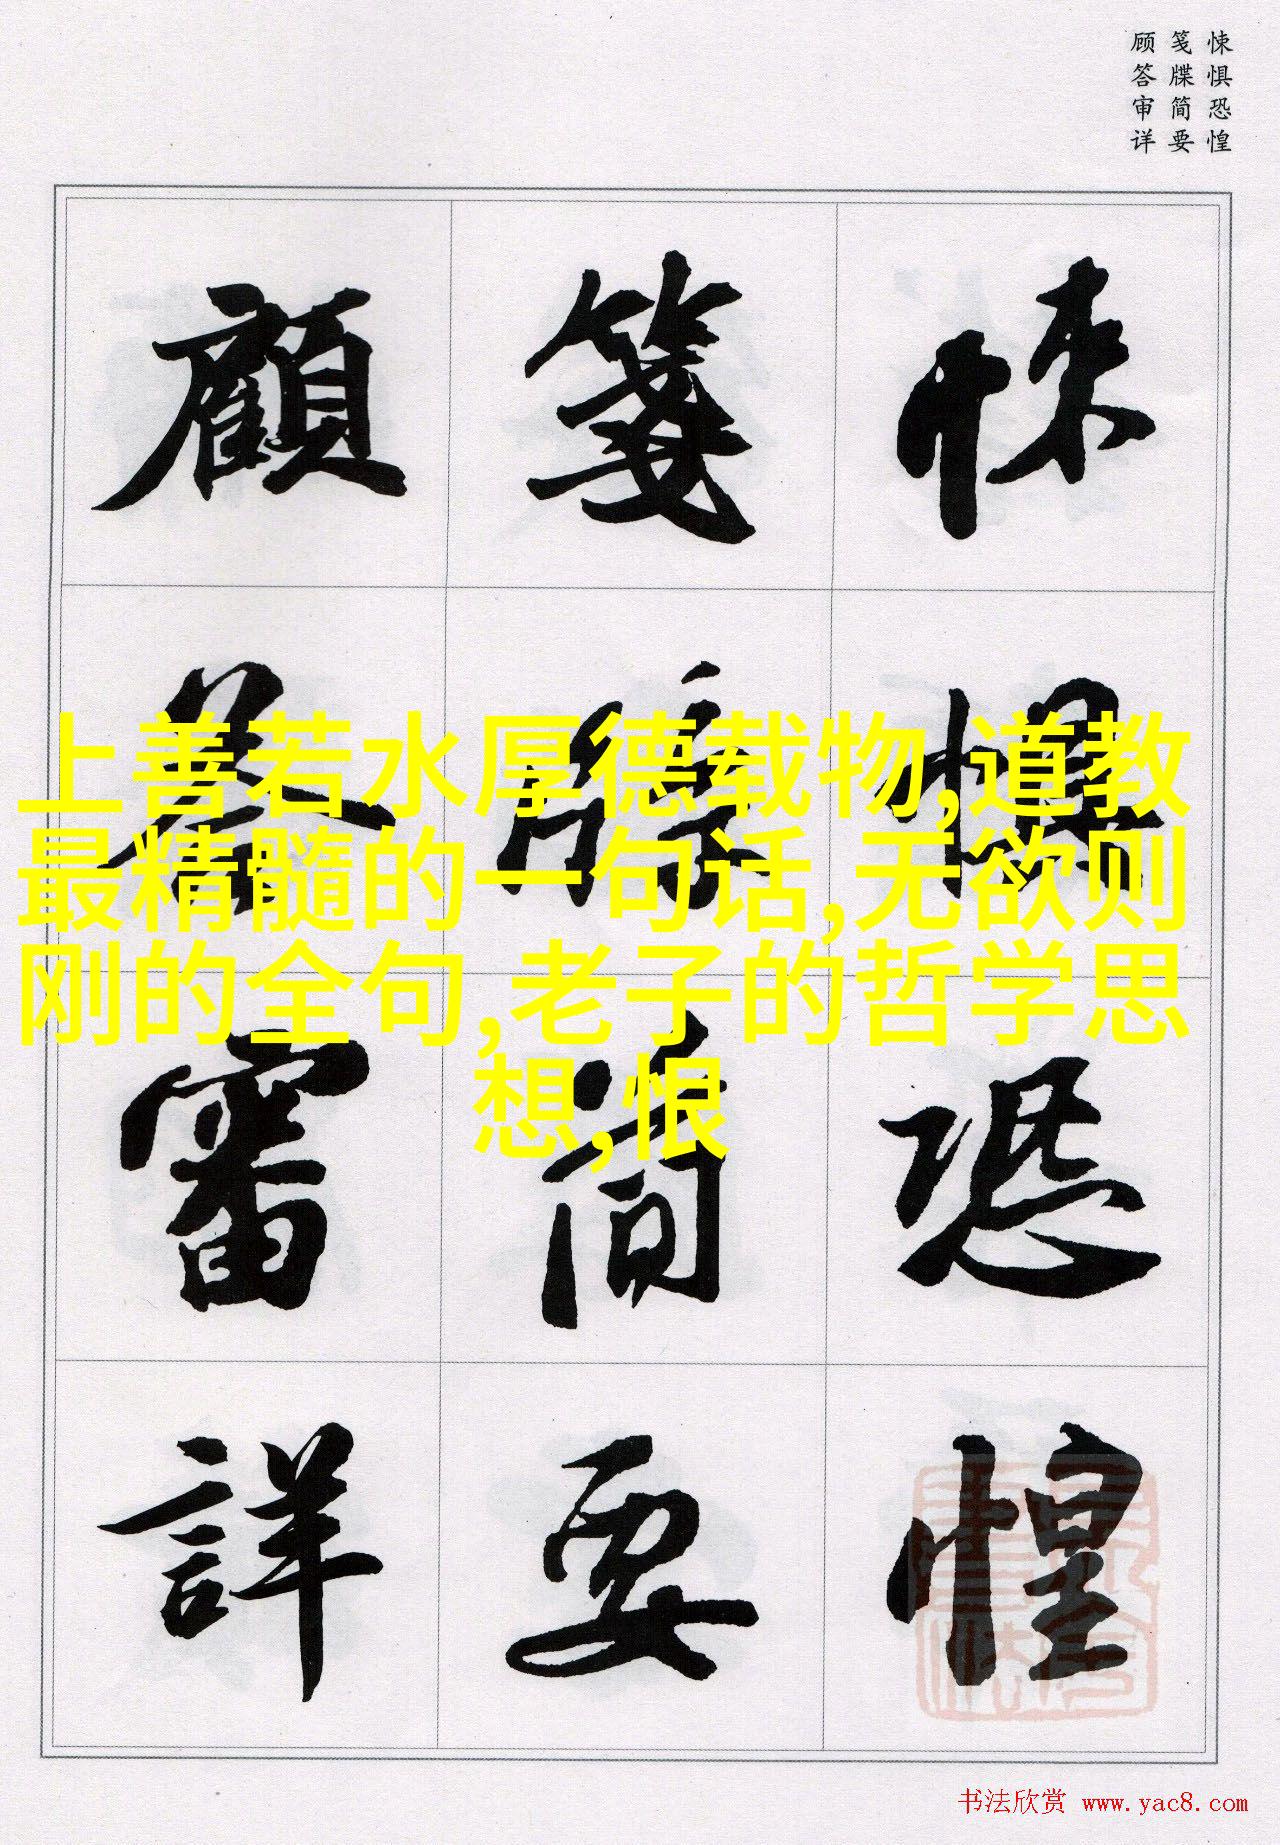 悚惧恐惶
笺牒简要
顾答审详
悚懼恐惶
箋牒简要
顧答審詳
上善若水厚德载物,道教
最精髓的一句话,无欲则
刚的全句,老子的哲学思
想,恨
书法欣赏 www.yac8.com